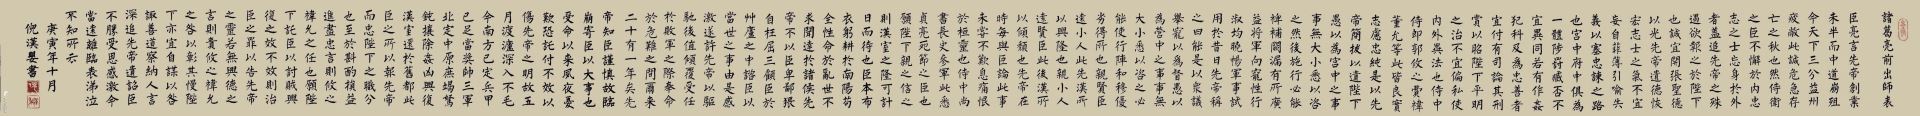 諸葛亮前出師表
臣亮言先帝創業
未半而中道崩殂
今天下三分益州
疲敝此誠危急存
亡之秋也然侍衛
之臣不懈於內忠
志之士忘身於外
者蓋追先帝之殊
遇欲報之於陛下
也誠宜開張聖德
以光先帝遺德恢
宏志士之氣不宜
妄自菲薄引喻失
義以塞忠諫之路
也宮中府中俱為
一體陟罰臧否不
宜異同若有作姦
犯科及為忠善者
宜付有司論其刑
賞以昭陛下平明
之治不宜偏私使
內外異法也侍中
侍郎郭攸之費禕
董允等此皆良實
志慮忠純是以先
帝簡拔以遺陛下
愚以為宮中之事
事無大小悉以咨
之然後施行必能
裨補闕漏有所廣
益將軍向寵性行
淑均曉暢軍事試
用於昔日先帝稱
之曰能是以眾議
舉寵以為督愚以
為營中之事事無
大小悉以咨之必
能使行陣和穆優
劣得所也親賢臣
遠小人此先漢所
以興隆也親小人
遠賢臣此後漢所
以傾頹也先帝在
時每與臣論此事
未嘗不歎息痛恨
於桓靈也侍中尚
書長史參軍此悉
貞亮死節之臣也
願陛下親之信之
則漢室之隆可計
日而待也臣本布
衣躬耕於南陽苟
全性命於亂世不
求聞達於諸侯先
帝不以臣卑鄙猥
自枉屈三顧臣於
艸廬之中諮臣以
當世之事由是感
激遂許先帝以驅
馳後值傾覆受任
於敗軍之際奉命
於危難之間爾來
二十有一年矣先
帝知臣謹慎故臨
崩寄臣以大事也
受命以來夙夜憂
歎恐託付不效以
傷先帝之明故五
月渡瀘深入不毛
今南方已定兵甲
已足當獎師三軍
北定中原庶竭駑
鈍攘除姦凶興復
漢室還於舊都此
臣之所以報先帝
而忠陛下之職分
也至於斟酌損益
進盡忠言則攸之
禕允之任也願陛
下託臣以討賊興
復之效不效則治
臣之罪以告先帝
之靈若無興德之
言則責攸之禕允
之咎以彰其慢陛
下亦宜自謀以咨
諏善道察納雅言
深追先帝遺詔臣
不勝受恩感激今
當遠離臨表涕泣
不知所云
庚寅年十月
倪漢書